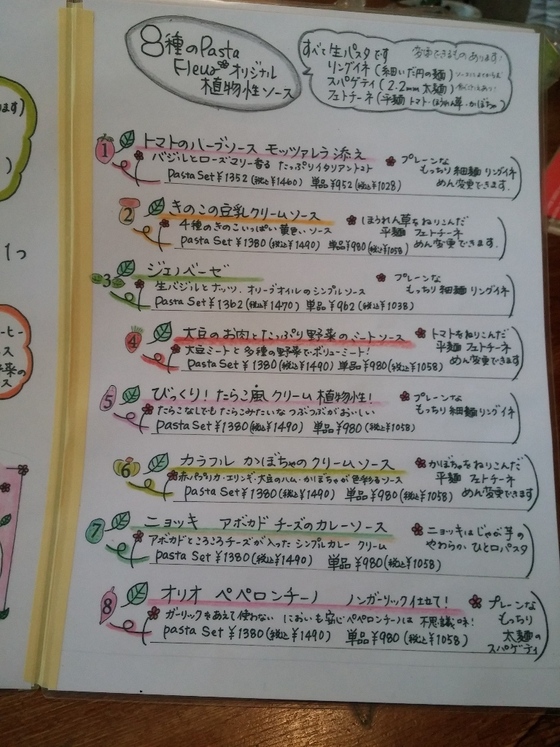 8種のPasta
Fleur オリジナル
植物性ソース
すべて生パスタです
変更できるものあります!
リングイネ(細いだ円の麺)
スパゲティ(2.2mm 太麺)
フェトチーネ(平麺 トマト・ほうれん草・かぼちゃ)
1 トマトのハーブソース モッツァレラ添え
バジルとローズマリー香る たっぷりイタリアントマト
pasta Set ¥1352(税込¥1460) 単品¥952(税込¥1028)
プレーンな
もっちり 細麺 リングイネ
めん変更できます。
2 きのこの豆乳クリームソース
4種のきのこいっぱい 黄色いソース
pasta Set ¥1380(税込¥1490) 単品¥980(税込¥1058)
ほうれん草をねりこんだ
平麺 フェトチーネ
めん変更できます。
3 ジェノベーゼ
生バジルとナッツ、オリーブオイルのシンプルソース
pasta Set ¥1362(税込¥1470) 単品¥962(税込¥1038)
プレーンな
もっちり 細麺 リングイネ
4 大豆のお肉とたっぷり野菜のミートソース
大豆ミートと多種の野菜でボリューミート!
pasta Set ¥1380(税込¥1490) 単品¥980(税込¥1058)
トマトをねりこんだ
平麺 フェトチーネ
めん変更できます
5 びっくり!たらこ風クリーム 植物性!
たらこなしでもたらこみたいなつぶつぶがおいしい
pasta Set ¥1380(税込¥1490) 単品¥980(税込¥1058)
プレーンな
もっちり細麺リングイネ
6 カラフル かぼちゃのクリームソース
赤パプリカ・エリンギ・大豆のハム・かぼちゃが色彩るソース
pasta Set ¥1380(税込¥1490) 単品¥980(税込¥1058)
かぼちゃをねりこんだ
平麺 フェトチーネ
めん変更できます
7 ニョッキ アボカドチーズのカレーソース
アボカドところころチーズが入った シンプルカレー クリーム
pasta Set ¥1380(税込¥1490) 単品¥980(税込¥1058)
ニョッキはじゃが芋の
やわらか ひと口パスタ
8 オリオ ペペロンチーノ ノンガーリック仕立て!
ガーリックをあえて使わない においも安心ペペロンチーノは 不思議味!
pasta Set ¥1380(税込¥1490) 単品¥980(税込¥1058)
プレーンな
もっちり
太麺の
スパゲティ